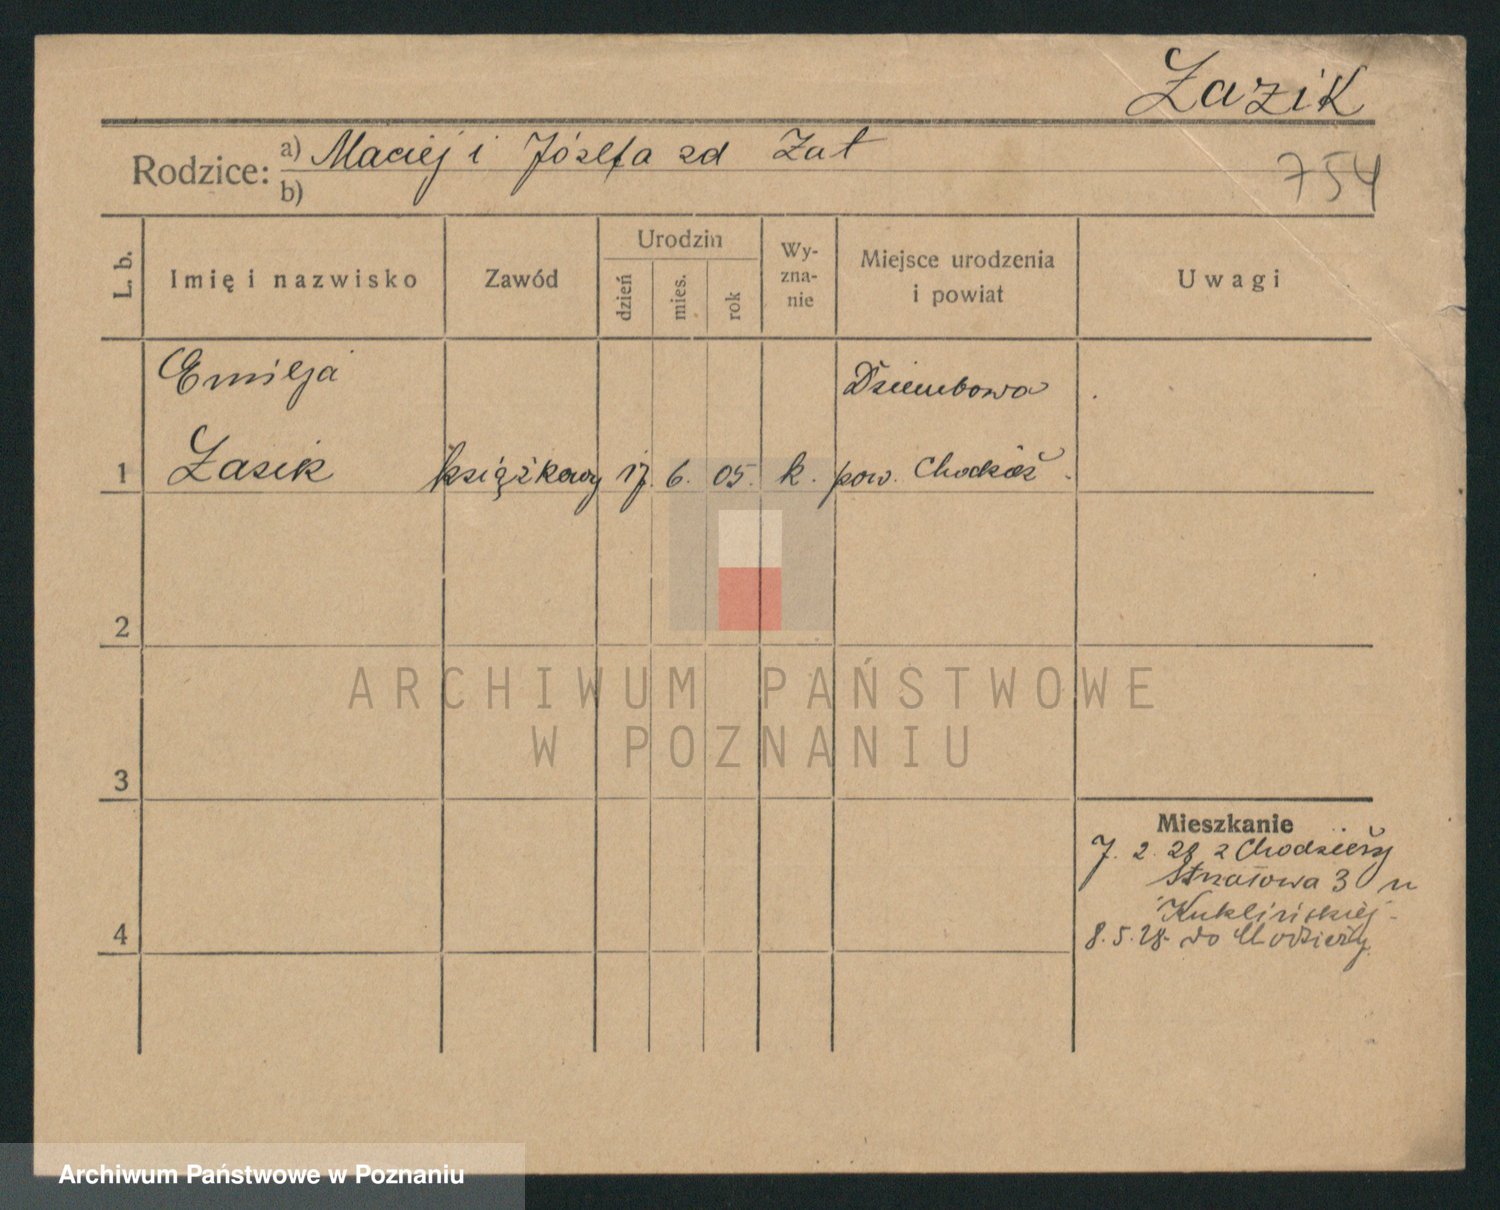 Łazik
Rodzice: a) Maciej i Józefa zd Żut
b)
754
L. b.
Imię i nazwisko
Zawód
Urodzin
dzień
mies.
rok
Wy-
zna-
nie
Miejsce urodzenia
i powiat
Uwagi
Emilja
Dziembowa
1 Łasik książkowy 17. 6. 05. k. pow. Chodzież
2
3
Mieszkanie
7. 2. 28 z Chodzieży
3 u
Kuklińskiej
4
8. 5. 28 do Chodzieży
ARCHIWUM PAŃSTWOWE
W POZNANIU
Archiwum Państwowe w Poznaniu